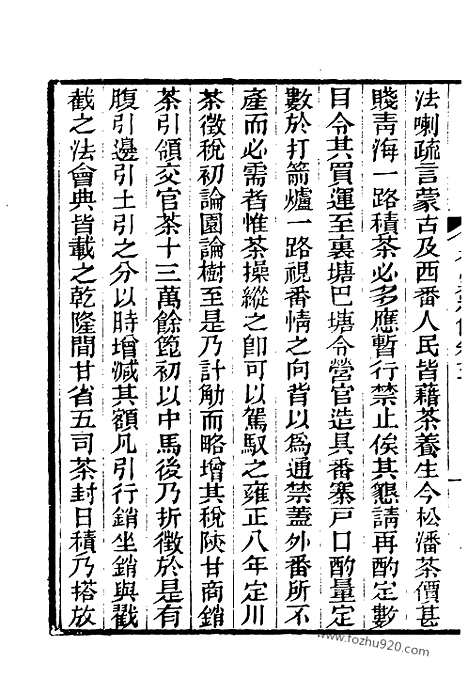 法喇疏言蒙古及西番人民皆藉茶養生今松潘茶價甚
賤青海一路積茶必多應暫行禁止俟其懇請再酌定數
目令其買運至裏塘巴塘令營官造具番寨戶口酌量定
數於打箭爐一路視番情之向背以為通禁蓋外番所不
產而必需者惟茶操縱之卽可以駕馭之雍正八年定川
茶徵稅初論園論樹至是乃計觔而略增其稅陝甘商銷
茶引領交官茶十三萬餘篦初以中馬後乃折徵於是有
腹引邊引土引之分以時增減其額凡引行銷坐銷與戳
截之法會典皆載之乾隆間甘省五司茶封日積乃搭放
www.fozhu920.com